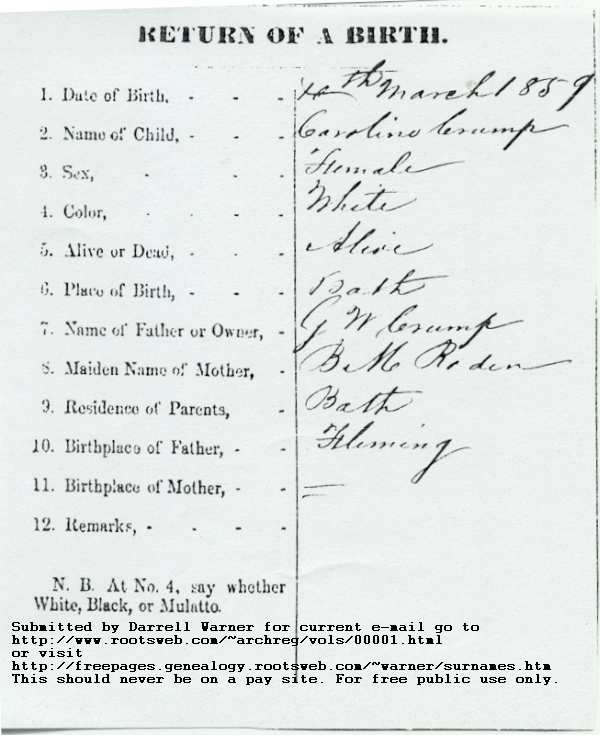 RETURN OF A BIRTH.
1. Date of Birth, - - - 4th March 1859
2. Name of Child, - - - Caroline Crump
3. Sex, - - - Female
4. Color, - - - - White
5. Alive or Dead, - - - Alive
6. Place of Birth, - - - Bath
7. Name of Father or Owner, - G W Crump
8. Maiden Name of Mother, - B M Roden
9. Residence of Parents, - Bath
10. Birthplace of Father, - - Fleming
11. Birthplace of Mother, - - =
12. Remarks, - - - -
N. B. At No. 4, say whether
White, Black, or Mulatto.
Submitted by Darrell Warner for current e-mail go to
http://www.rootsweb.com/~archreg/vols/00001.html
or visit
http://freepages.genealogy.rootsweb.com/~warner/surnames.htm
This should never be on a pay site. For free public use only.